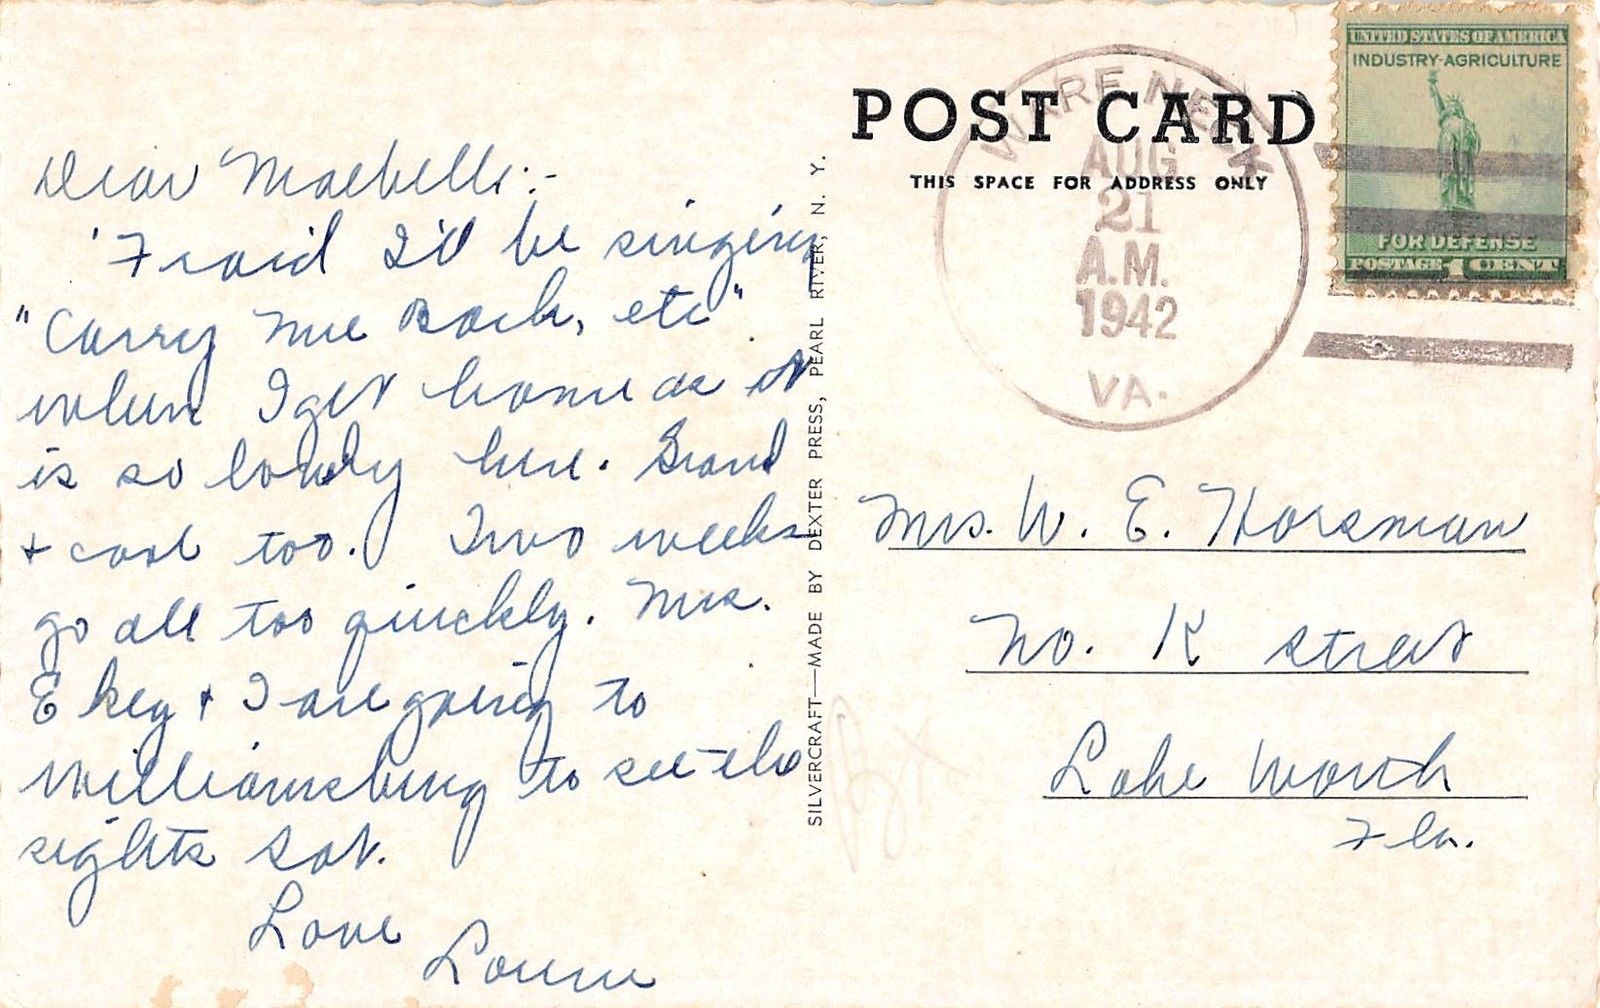 Dear Maebelle:-
'Fraid I'll be singing
"Carry Me Back, etc"
when I get home as it
is so lovely here. Grand
& cool too. Two weeks
go all too quickly. Mrs.
Ekey & I are going to
Williamsburg to see the
sights Sat.
Love
Louise
SILVERCRAFT—MADE BY DEXTER PRESS, PEARL RIVER, N. Y.
POST CARD
THIS SPACE FOR ADDRESS ONLY
WARE NECK
AUG
21
A.M.
1942
VA.
UNITED STATES OF AMERICA
INDUSTRY-AGRICULTURE
FOR DEFENSE
POSTAGE 1 CENT
Mrs. W. E. Horsman
No. K Street
Lake Worth
Fla.